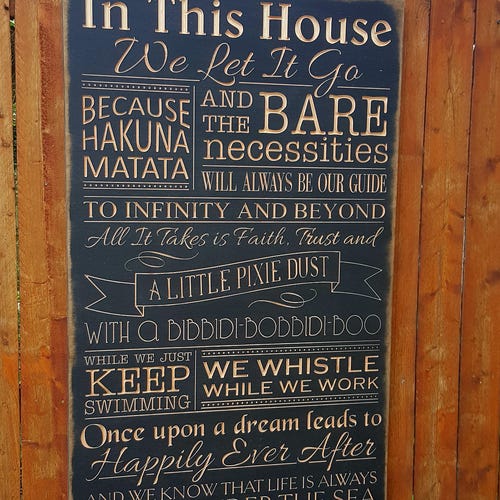 In This House
We Let It Go
BECAUSE
HAKUNA
MATATA
AND
THE
BARE
necessities
WILL ALWAYS BE OUR GUIDE
TO INFINITY AND BEYOND
All It Takes is Faith, Trust and
A LITTLE PIXIE DUST
WITH a BIBBIDI-BOBBIDI-BOO
WHILE WE JUST
KEEP
SWIMMING
WE WHISTLE
WHILE WE WORK
Once upon a dream leads to
Happily Ever After
AND WE KNOW THAT LIFE IS ALWAYS
THE SEA